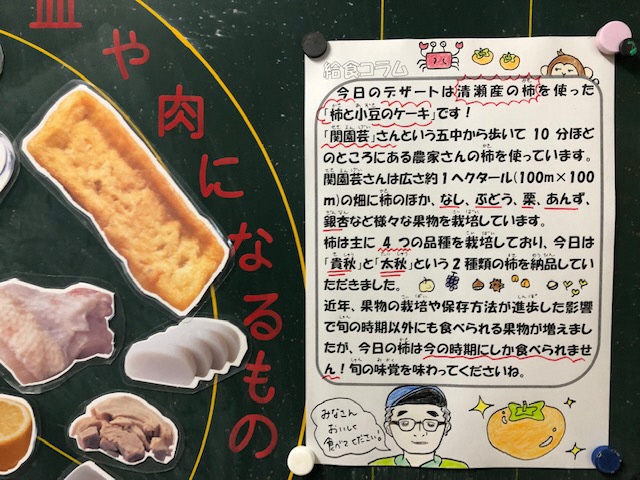 血や肉になるもの
給食コラム
今日のデザートは清瀬産の柿を使った
「柿と小豆のケーキ」です！
「関園芸」さんという五中から歩いて 10 分ほど
のところにある農家さんの柿を使っています。
関園芸さんは広さ約１ヘクタール(100m×100
m)の畑に柿のほか、なし、ぶどう、栗、あんず、
銀杏など様々な果物を栽培しています。
柿は主に 4 つの品種を栽培しており、今日は
「貴秋」と「太秋」という 2 種類の柿を納品してい
ただきました。
近年、果物の栽培や保存方法が進歩した影響
で旬の時期以外にも食べられる果物が増えまし
たが、今日の柿は今の時期にしか食べられませ
ん！旬の味覚を味わってくださいね。
みなさん
おいしく
食べてください！